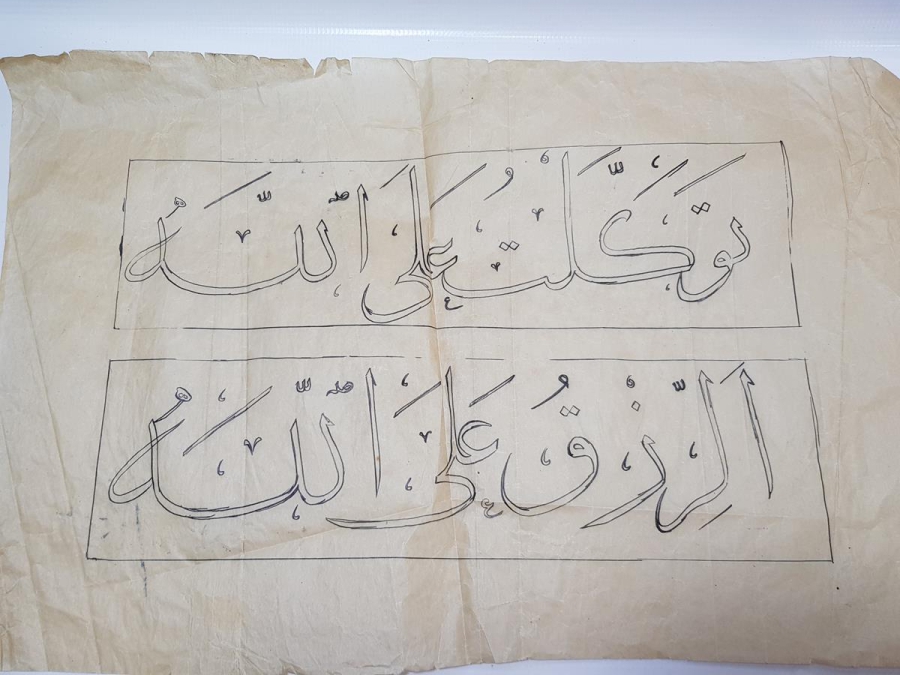 تَوَكَّلْتُ عَلَى اللّٰه
اَلرِّزْقُ عَلَى اللّٰه